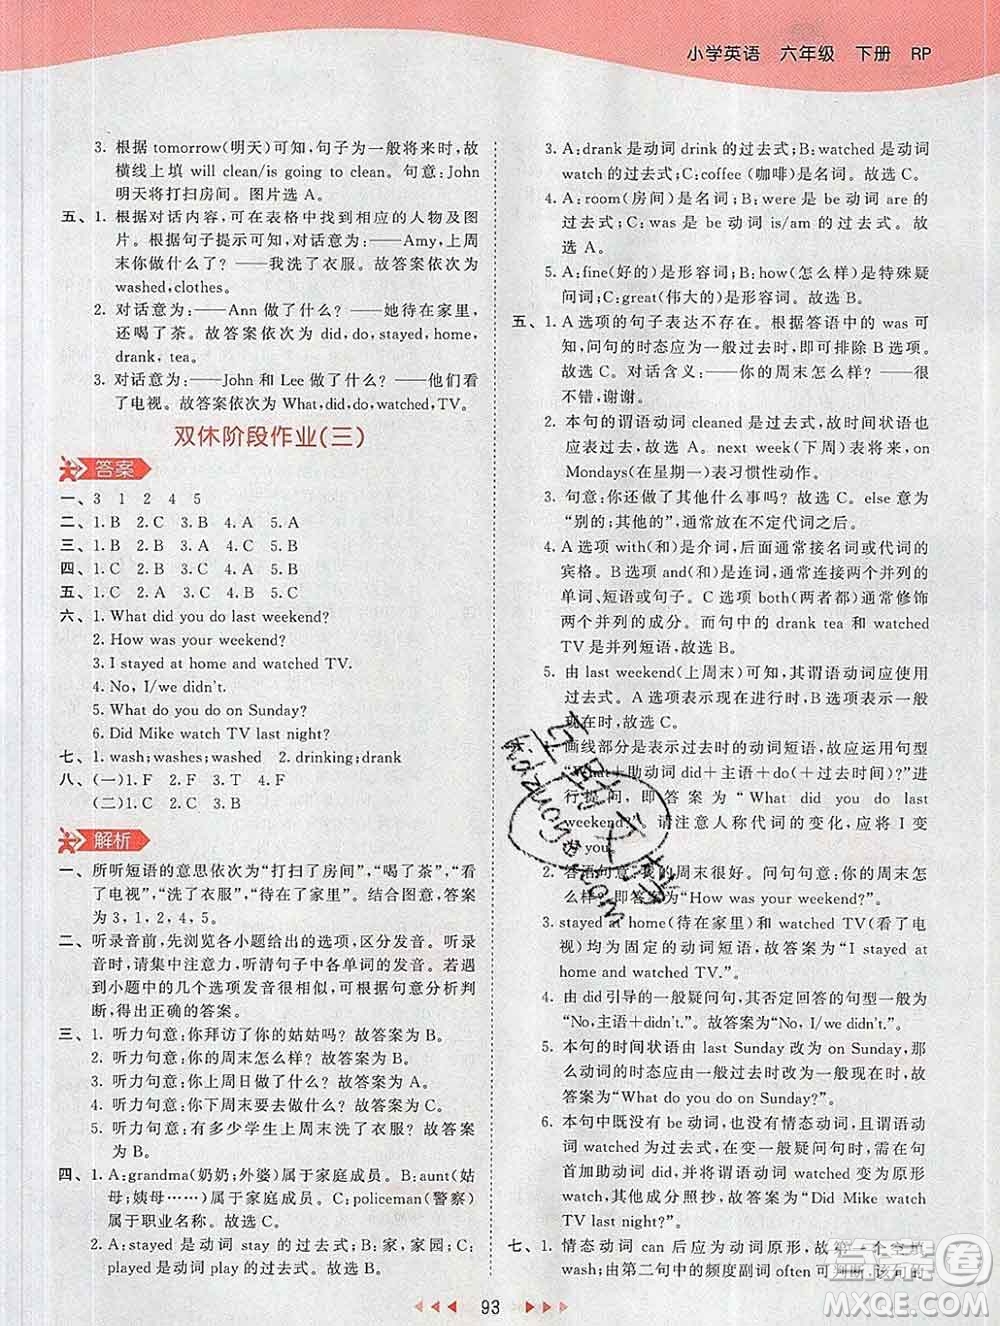 小学英语 六年级 下册 RP
3. 根据 tomorrow(明天)可知,句子为一般将来时,故
横线上填 will clean/is going to clean。句意:John
明天将打扫房间。图片选 A。
五、1. 根据对话内容,可在表格中找到相应的人物及图
片。根据句子提示可知,对话意为:——Amy,上周
末你做什么了?——我洗了衣服。故答案依次为
washed,clothes。
2. 对话意为:——Ann 做了什么?——她待在家里,
还喝了茶。故答案依次为 did,do,stayed,home,
drank,tea。
3. 对话意为:——John 和 Lee 做了什么?——他们看
了电视。故答案依次为 What,did,do,watched,TV。
双休阶段作业(三)
答案
一、3 1 2 4 5
二、1. B 2. C 3. B 4. A 5. A
三、1. B 2. B 3. A 4. C 5. B
四、1. C 2. B 3. C 4. A 5. B
五、1. C 2. A 3. C 4. B 5. C
六、1. What did you do last weekend?
2. How was your weekend?
3. I stayed at home and watched TV.
4. No, I/we didn't.
5. What do you do on Sunday?
6. Did Mike watch TV last night?
七、1. wash;washes;washed 2. drinking;drank
八、(一)1. F 2. F 3. T 4. F
(二)1. C 2. B 3. B
解析
一、所听短语的意思依次为“打扫了房间”,“喝了茶”,“看
了电视”,“洗了衣服”,“待在了家里”。结合图意,答案
为 3, 1, 2, 4, 5。
二、听录音前,先浏览各小题给出的选项,区分发音。听录
音时,请集中注意力,听清句子中各单词的发音。若遇
到小题中的几个选项发音很相似,可根据句意分析判
断,得出正确的答案。
三、1. 听力句意:你拜访了你的姑姑吗?故答案为 B。
2. 听力句意:你的周末怎么样?故答案为 B。
3. 听力句意:你上周日做了什么?故答案为 A。
4. 听力句意:你下周末要去做什么?故答案为 C。
5. 听力句意:有多少学生上周末洗了衣服?故答案
为 B。
四、1. A:grandma(奶奶;外婆)属于家庭成员。B:aunt(姑
母;姨母……)属于家庭成员。C:policeman(警察)
属于职业名称。故选 C。
2. A:stayed 是动词 stay 的过去式;B:家,家园;C:
played 是动词 play 的过去式。故选 B。
3. A:drank 是动词 drink 的过去式;B:watched 是动词
watch 的过去式;C:coffee (咖啡)是名词。故选 C。
4. A:room(房间)是名词;B:were 是 be 动词 are 的
过去式;C:was 是 be 动词 is/am 的过去式。故
选 A。
5. A:fine(好的)是形容词;B:how(怎么样)是特殊疑
问词;C:great(伟大的)是形容词。故选 B。
五、1. A 选项的句子表达不存在。根据答语中的 was 可
知,问句的时态应为一般过去时,即可排除 B 选项。
故选 C。对话含义:——你的周末怎么样?——很
不错,谢谢。
2. 本句的谓语动词 cleaned 是过去式,故时间状语也
应表过去,故选 A。next week(下周)表将来,on
Mondays(在星期一)表习惯性动作。
3. 句意:你还做了其他什么事吗?故选 C。else 意为
“别的;其他的”,通常放在不定代词之后。
4. A 选项 with(和)是介词,后面通常接名词或代词的
宾格。B 选项 and(和)是连词,通常连接两个并列的
单词、短语或句子。C 选项 both(两者都)通常修饰
两个并列的成分。而句中的 drank tea 和 watched
TV 是并列短语,故选 B。
5. 由 last weekend(上周末)可知,其谓语动词应使用
过去式。A 选项表示现在进行时,B 选项表示一般
现在时,故选 C。
画线部分是表示过去时的动词短语,故应运用句型
“What+助动词 did+主语+do(+过去时间)?”进
行提问,即答案为“What did you do last
weekend?”。请注意人称代词的变化,应将 I 变
为 you。
2. 答语句意:我的周末很好。问句句意:你的周末怎
么样?即答案为“How was your weekend?”。
3. stayed at home(待在家里)和 watched TV(看了电
视)均为固定的动词短语,故答案为“I stayed at
home and watched TV.”。
4. 由 did 引导的一般疑问句,其否定回答的句型一般为
“No,主语+didn't.”。故答案为“No, I/we didn't.”。
5. 本句的时间状语由 last Sunday 改为 on Sunday,那
么动词的时态应由一般过去时改为一般现在时,故
答案为“What do you do on Sunday?”。
6. 本句中既没有 be 动词,也没有情态动词,且谓语动
词 watched 为过去式,在变一般疑问句时,应在句
首添加助动词 did,并将谓语动词 watched 变为原形
watch,其他成分照抄,故答案为“Did Mike watch
TV last night?”。
七、1. 情态动词 can 后应为动词原形,故第一个空填
wash;由第二句中的频度副词 often 可判断,该句的
93
答案圈
MXQE.COM